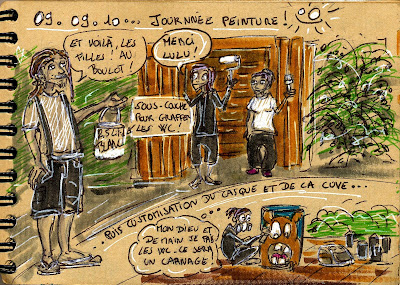 09. 09. 10... JOURNÉE PEINTURE!
ET VOILÀ, LES
FILLES! AU
BOULOT!
MERCI
LULU!
SOUS-COUCHE
POUR GRAFFER
LES WC!
BLANC
..PUIS CUSTOMISATION DU CASQUE ET DE LA CUVE...
MON DIEU ET
DEMAIN JE FAIS
LES WC.. CE SERA
UN CARNAGE